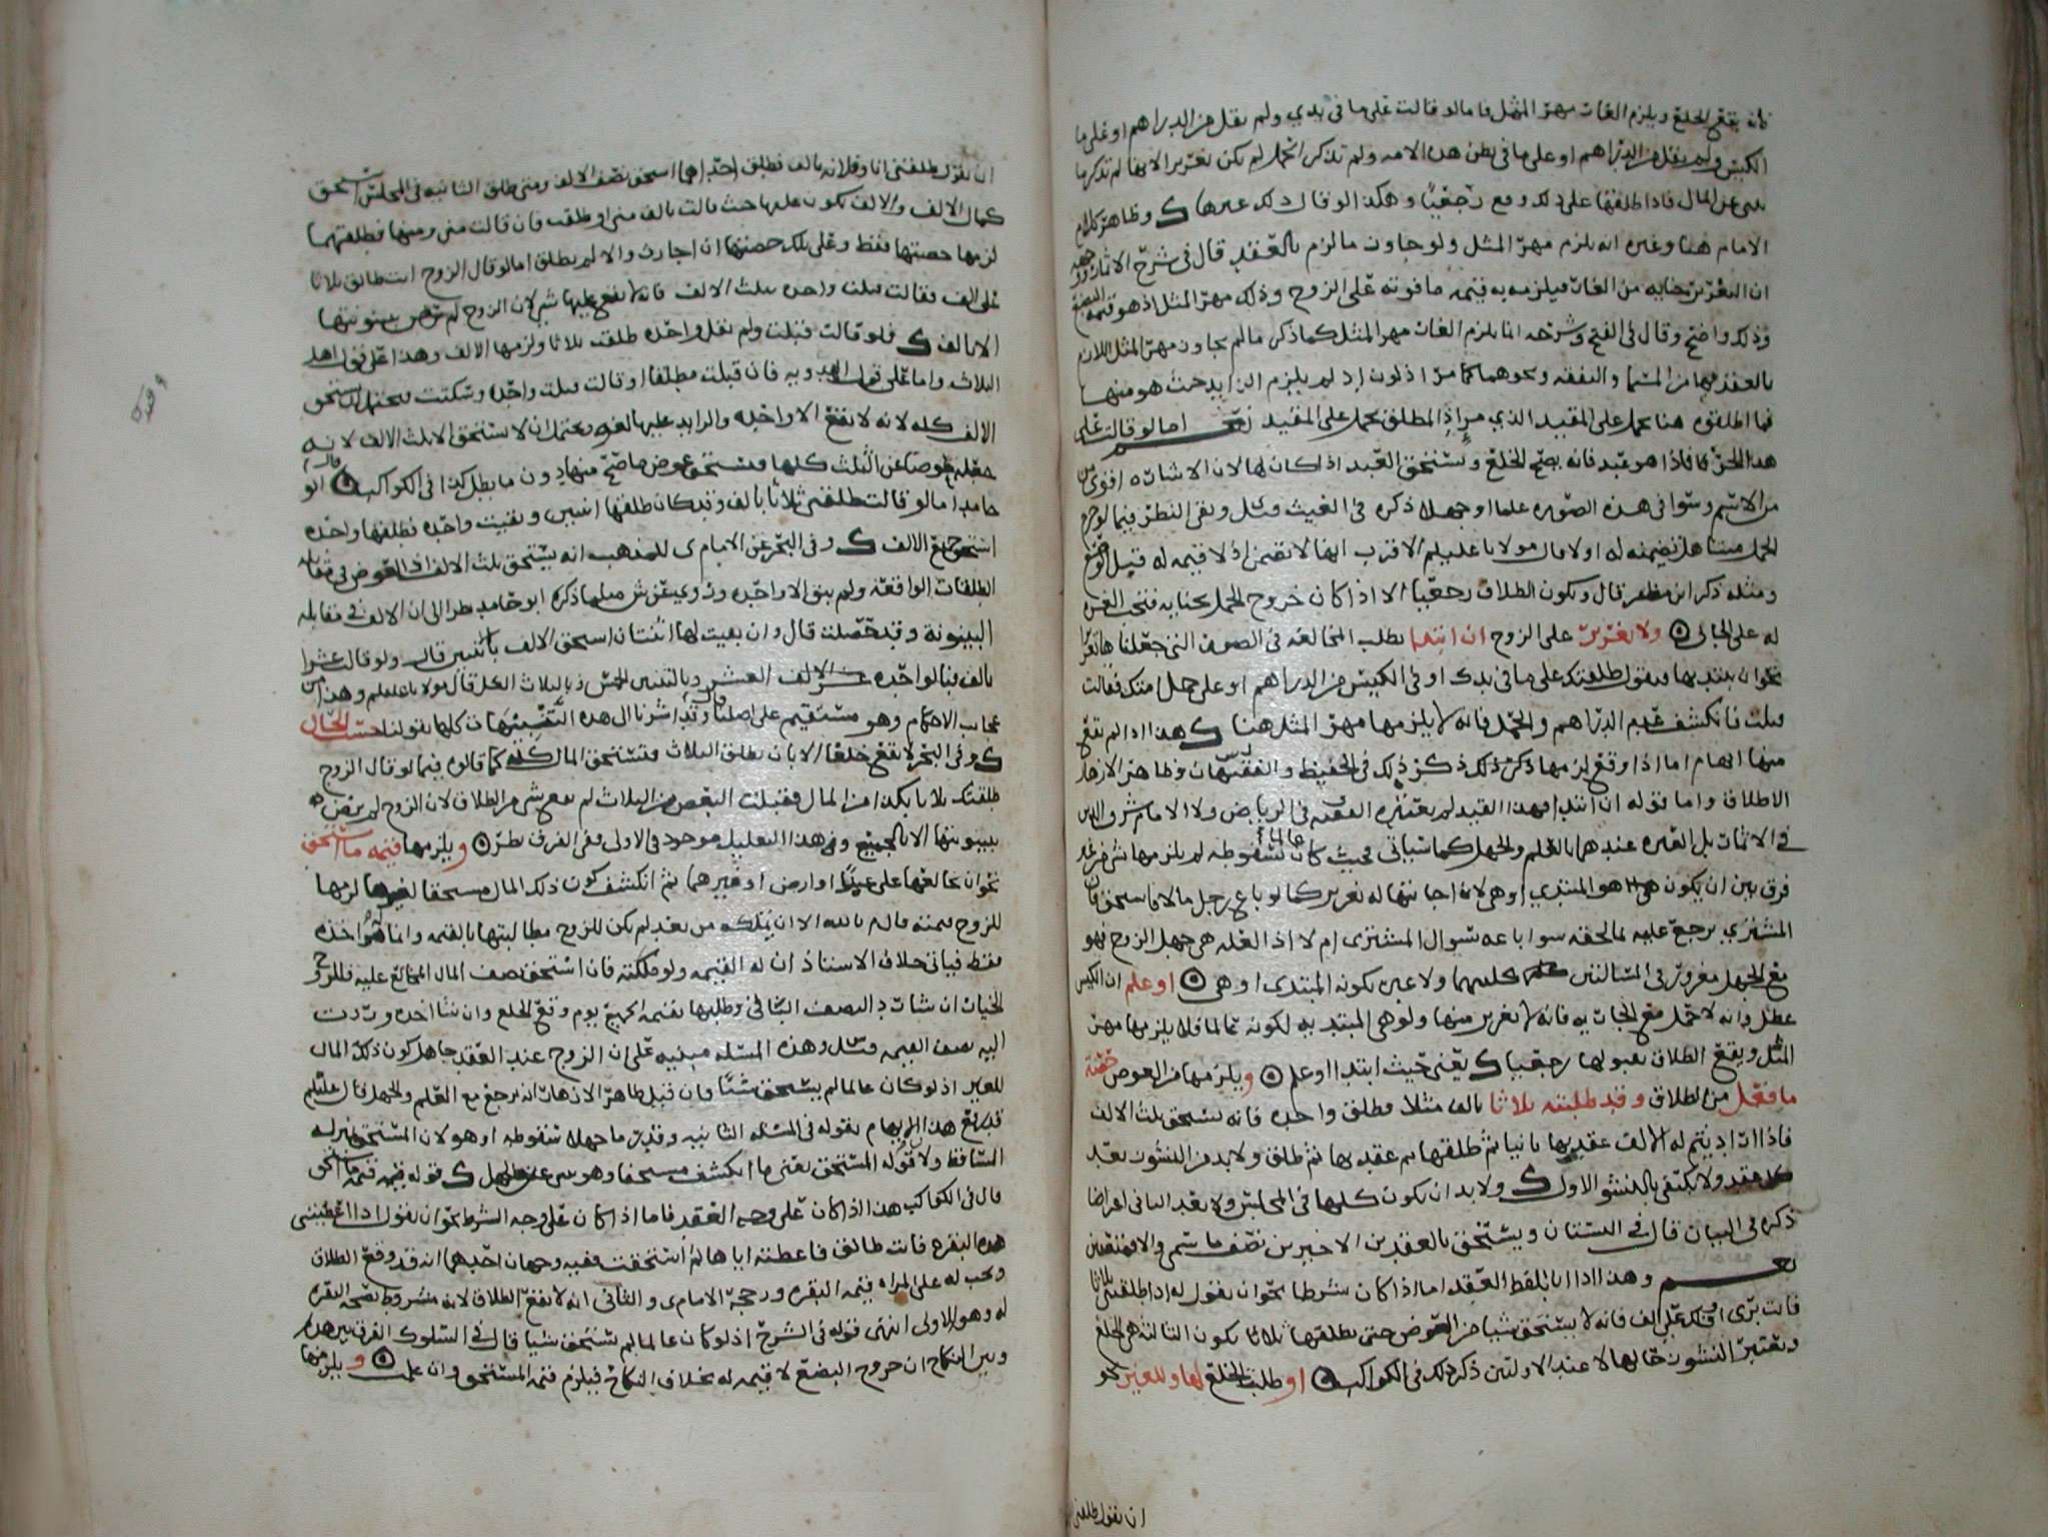 فانه يقع الخلع ويلزم الغار مهر المثل فاما لو قالت على ما في يدي ولم تقل من الدراهم او على ما
الكيس ولم تقل من الدراهم او على ما في بطن هذه الامه ولم تذكر الحمل لم يكن تغرير الانها لم تذكر ما
عن المال فاذا طلقها على ذلك وقع رجعيا وهكذا لو قال ذلك غيرها ك وظاهر كلام
الامام هنا وغيره انه يلزم مهر المثل ولو جاوز ما لزم بالعقد قال في شرح الاثمار
ان التغرير جنايه من الغار فيلزمه به قيمه ما فوته على الزوج وذلك مهر المثل اذ هو قيمة البضع
وذلك واضح وقال في الفتح وشرحه انما يلزم الغار مهر المثل كما ذكر ما لم يجاوز مهر المثل اللازم
بالعقد من المسمى والنفقه ونحوهما كما مر اذ لم يلزم الزايد حيث هو منها
فما اطلقوه هنا محمل على المقيد الذي مر اذ المطلق يحمل على المقيد نعم اما لو قالت على
هذا الحر فاذا هو عبد فانه يصح الخلع ويستحق العبد اذا كان لها لان الاشاره اقوى
من الاسم وسوا في هذه الصوره علما او جهلا ذكره في الغيث وبقي النظر فيما لو خرج
الحمل ميتا هل تضمنه له او لا قال مولانا عليلم الاقرب انها لا تضمن اذ لا قيمه له قبل الوضع
ومثله ذكر ابن مظفر قال ويكون الطلاق رجعيا الا اذا كان خروج الحمل بجنايه فتجب الغره
له على الجاني ولا تغرير على الزوج ان ابتدا بطلب المخالعه في الصور التي جعلناها تغريرا
نحو ان يبتديها فيقول طلقتك على ما في يدك او في الكيس من الدراهم او على حمل امتك فقالت
قبلت فانكشف عدم الدراهم والحمل فانه لا يلزمها مهر المثل هنا ك هذا اذا لم يقع
منها ايهام اما اذا وقع لزمها ذكر ذلك في الحفيظ والفقيه وظاهر الازهار
الاطلاق واما قوله ان ابتدا فهذا القيد لم يعتبره الفقيه في الرياض ولا الامام شرف الدين
في الاثمار بل العبره عندهما بالعلم والجهل كما سياتي فحيث كان عالما سقوطه لم يلزمها شي من غير
فرق بين ان يكون هو المبتدي او هي لان اجابتها له تغرير كما لو باع رجل مالا فاستحق فان
المشتري يرجع عليه بما لحقه سوا باعه بسوال المشتري ام لا اذ العله هي جهل الزوج فهو
مع الجهل مغرور في المسالتين كليهما ولا عبره بكونه المبتدي او هي او علم ان الكيس
عطل وانه لا حمل مع الجاريه فانه لا تغرير منها ولو هي المبتديه لكونه عالما فلا يلزمها مهر
المثل ويقع الطلاق بقبولها رجعيا ك يعني حيث ابتدا او علم ويلزمها من العوض حصة
ما فعل من الطلاق وقد طلبته ثلاثا بالف مثلا فطلق واحده فانه يستحق ثلث الالف
فاذا اراد يتم له الالف عقد بها ثانيا ثم طلقها ثم عقد بها ثم طلق ولا بد من النشوز بعد
كل عقد ولا يكتفي بالنشوز الاول ك ولا بد ان يكون كلها في المجلس ولا يعد الثاني اعراضا
ذكره في البيان قال في البستان ويستحق بالعقدين الاخيرين نصف ما سمى والا
نعم وهذا اذا اتا بلفظ العقد اما اذا كان شرطا نحو ان يقول له اذا طلقتني ثلاثا
فانت بري من الف فانه لا يستحق شيا من العوض حتى يطلقها ثلاثا يكون الثالثه هي الخلع
ويعتبر النشوز حالها لا عند الاولتين ذكر ذلك في الكواكب او طلبت الخلع لها وللغير نحو
ان تقول طلقني
ان تقول طلقني انا وفلانه بالف فطلق احداهما استحق نصف الالف ومتى طلق الثانيه في المجلس استحق
كمال الالف والالف يكون عليها حيث قالت بالف مني او اطلقت فان قالت مني ومنها فطلقهما
لزمها حصتها فقط وعلى تلك حصتها ان اجازت والا لم يطلق اما لو قال الزوج انت طالق ثلاثا
على الف فقالت قبلت واحده بثلث الالف فانه لا يقع عليها شي لان الزوج لم يرض ببينونتها
الا بالف ك فلو قالت قبلت ولم تقل واحده طلقت ثلاثا ولزمها الالف وهذا على قول اهل
الثلاث واما على قول الهدويه فان قبلت مطلقا او قالت قبلت واحده وسكتت فيحتمل ان يستحق
الالف كله لانه لا يقع الا واحده والزايد عليها لغو ويحتمل ان لا يستحق الا ثلث الالف لانه
جعله عوضا عن الثلث كلها فيستحق عوض ما صح منها دون ما بطل كذا في الكواكب قال ابو
حامد اما لو قالت طلقني ثلاثا بالف وقد كان طلقها اثنتين وبقيت واحده فطلقها واحده
استحق جميع الالف ك وفي البحر عن الامام ى للمذهب انه يستحق ثلث الالف اذ العوض في مقابله
الطلقات الواقعه ولم يبق الا واحده وروي عن ش مثل ما ذكره ابو حامد نظرا الى ان الالف في مقابله
البينونة وقد حصلت قال وان بقيت لها اثنتان استحق الالف باثنتين قال ولو قالت عشرا
بالف فبالواحده عشر الالف وبالثنتين الخمس وبالثلاث الكل قال مولانا عليلم وهذا من
عجايب الاحكام وهو مستقيم على اصلنا وقد اشرنا الى هذه التقسيمات كلها بقولنا حسب الحال
ك وفي البحر لا يقع خلعا الا بان يطلق الثلاث فيستحق المال كله كما قالوه فيما لو قال الزوج
طلقتك ثلاثا بكذا من المال فقبلت البعض من الثلاث لم يقع شي من الطلاق لان الزوج لم يرض
ببينونتها الا بالجميع وهذا التعليل موجود في الاولى ففي الفرق نظر ويلزمها قيمه ما استحق
نحو ان يخالعها على عبد او ارض او غيرهما ثم انكشف كون ذلك المال مستحقا لغيرها لزمها
للزوج قيمته قال م بالله الا ان تملكه من بعد لم يكن للزوج مطالبتها بالقيمه وانما له اخذه
فقط فياتي خلاف الاستاذ ان له القيمه ولو ملكته فان استحق نصف المال المخالع عليه فللزوج
الخيار ان شا رد النصف الثاني وطلبها بقيمه الجميع يوم وقع الخلع وان شا اخذه وردت
اليه نصف القيمه وهذه المسئله مبنيه على ان الزوج عند العقد جاهل كون ذلك المال
للغير اذ لو كان عالما لم يستحق شيا فان قيل ظاهر الازهار انه يرجع مع العلم والجهل قال عليلم
قد رفع هذا الايهام بقوله في المسئله الثانيه وقدر ما جهلا سقوطه او هو لان المستحق بمنزله
الساقط ولان قوله المستحق يعني ما انكشف مستحقا وهو ينبي عن الجهل ك قوله قيمه ما استحق
قال في الكواكب هذا اذا كان على وجه العقد فاما اذا كان على وجه الشرط نحو ان يقول اذا اعطيتني
هذه البقره فانت طالق فاعطته اياها ثم استحقت ففيه وجهان احدهما انه قد وقع الطلاق
ويجب له على المراه قيمه البقره ورجحه الامام ى والثاني انه لا يقع الطلاق لانه مشروط بصحة البقره
له وهو الاولى انتهى قوله في الشرح اذ لو كان عالما لم يستحق شيا قال في السلوك الفرق بين هذا
وبين النكاح ان خروج البضع لا قيمه له بخلاف النكاح فيلزم قيمه المستحق وان علمت ويلزمها